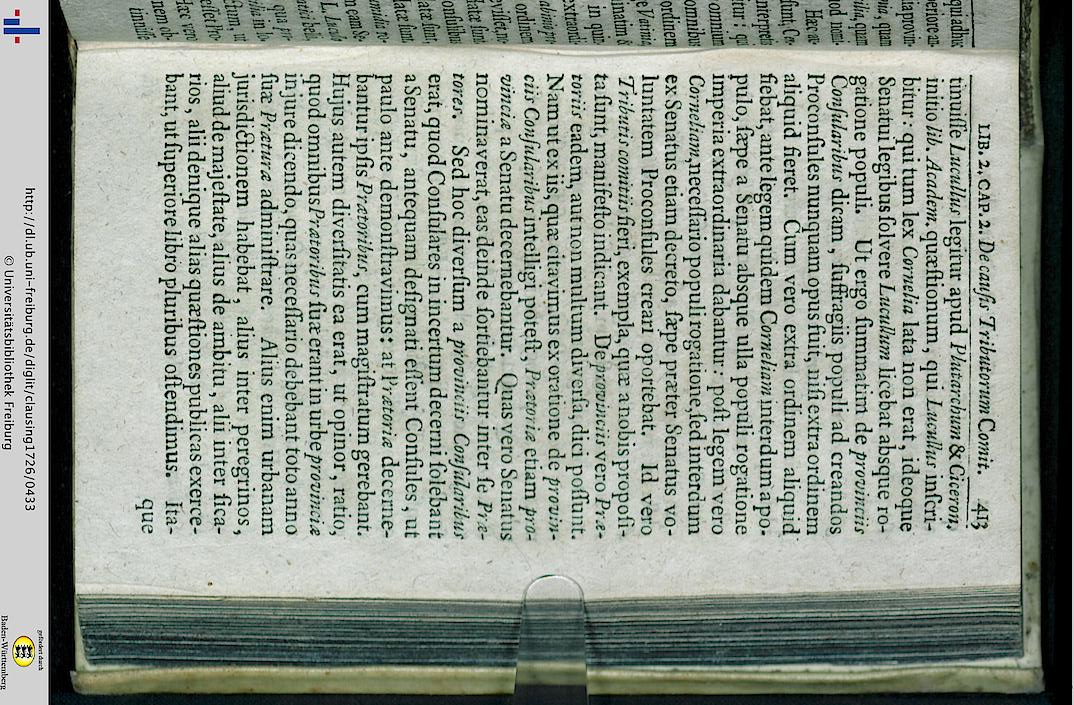 LIB. 2, CAP. 2. De causis Tributorum Comit. 413
tinuisse Lucullus legitur apud Plutarchum & Ciceron,
initio lib. Academ. quæstionum, qui Lucullus inscri-
bitur: qui tum lex Cornelia lata non erat, ideoque
Senatui legibus solvere Lucullum licebat absque ro-
gatione populi. Ut ergo summatim de provinciis
Consularibus dicam, suffragiis populi ad creandos
Proconsules nunquam opus fuit, nisi extra ordinem
aliquid fieret. Cum vero extra ordinem aliquid
fiebat, ante legem quidem Corneliam interdum a po-
pulo, sæpe a Senatu absque ulla populi rogatione
imperia extraordinaria dabantur: post legem vero
Corneliam, necessario populi rogatione, sed interdum
ex Senatus etiam decreto, sæpe præter Senatus vo-
luntatem Proconsules creari oportebat. Id vero
Tributis comitiis fieri, exempla, quæ a nobis proposi-
ta sunt, manifesto indicant. De provinciis vero Præ-
toriis eadem, aut non multum diversa, dici possunt.
Nam ut ex iis, quæ citavimus ex oratione de provin-
ciis Consularibus intelligi potest, Prætoriæ etiam pro-
vinciæ a Senatu decernebantur. Quas vero Senatus
nominaverat, eas deinde sortiebantur inter se Præ-
tores. Sed hoc diversum a provinciis Consularibus
erat, quod Consulares in incertum decerni solebant
a Senatu, antequam designati essent Consules, ut
paulo ante demonstravimus: at Prætoriæ decerne-
bantur ipsis Prætoribus, cum magistratum gerebant.
Hujus autem diversitatis ea erat, ut opinor, ratio,
quod omnibus Prætoribus suæ erant in urbe provinciæ
in jure dicendo, quas necessario debebant toto anno
suæ Præturæ administrare. Alius enim urbanam
jurisdictionem habebat, alius inter peregrinos,
alius de majestate, alius de ambitu, alii inter sica-
rios, alii denique alias quæstiones publicas exerce-
bant, ut superiore libro pluribus ostendimus. Ita-
que
http://dl.ub.uni-freiburg.de/diglit/clausing1726/0433
© Universitätsbibliothek Freiburg
gefördert durch
Baden-Württemberg